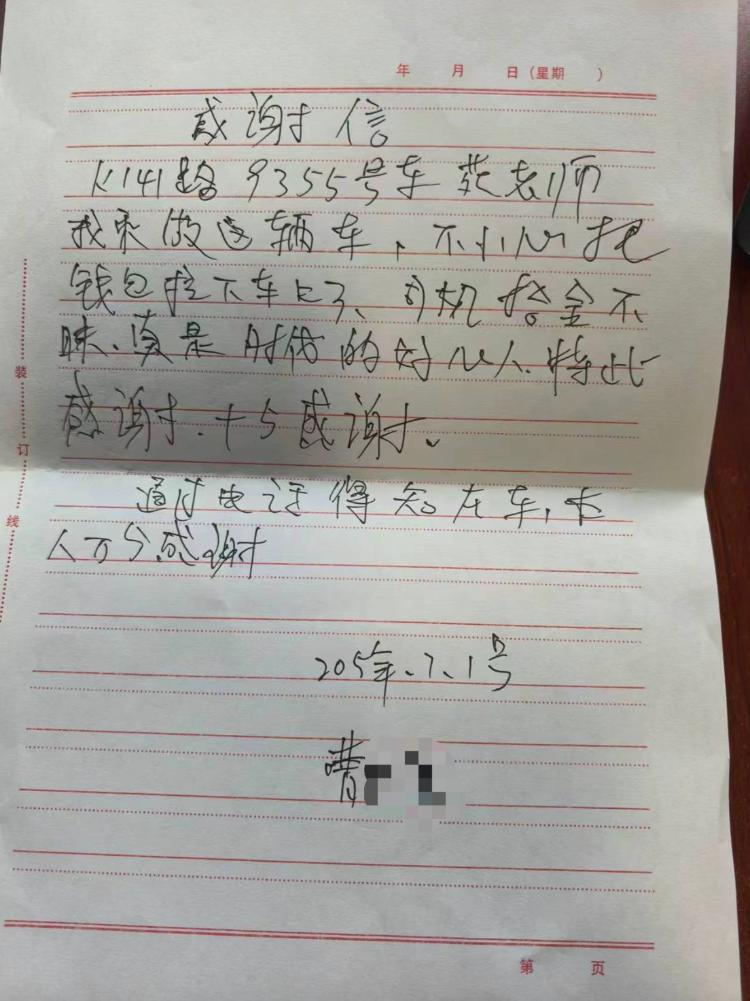 年 月 日(星期 )
感谢信
K141路 9355号车 范老师
我乘做这辆车,不小心把
钱包拉下车上了、司机拾金不
昧、真是时代的好心人.特此
感谢.十分感谢.
通过电话得知在车,本
人万分感谢
205年.7.1号
装
订
线
第 页